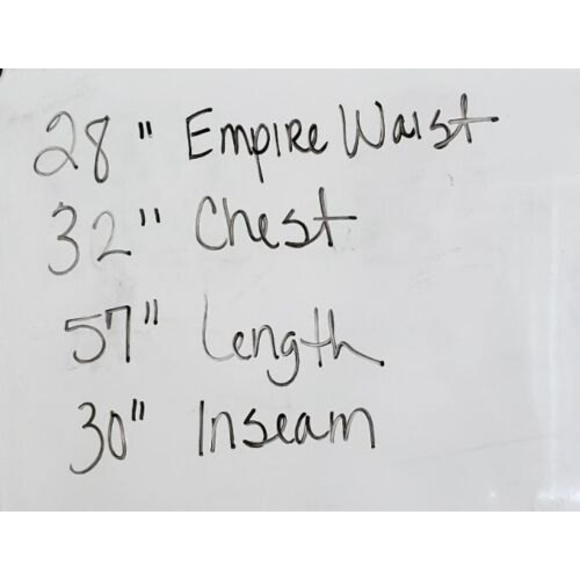 28" Empire Waist
32" Chest
57" Length
30" Inseam